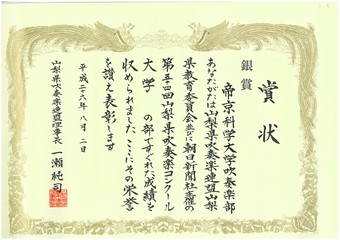 賞状
銀賞
帝京科学大学吹奏楽部
あなたがたは山梨県吹奏楽連盟山梨
県教育委員会並びに朝日新聞社主催の
第五十四回山梨県吹奏楽コンクール
大学の部ですぐれた成績を
収められましたここにその栄誉
を讃え表彰します
平成二十六年八月二日
山梨県吹奏楽連盟理事長 一瀬純司